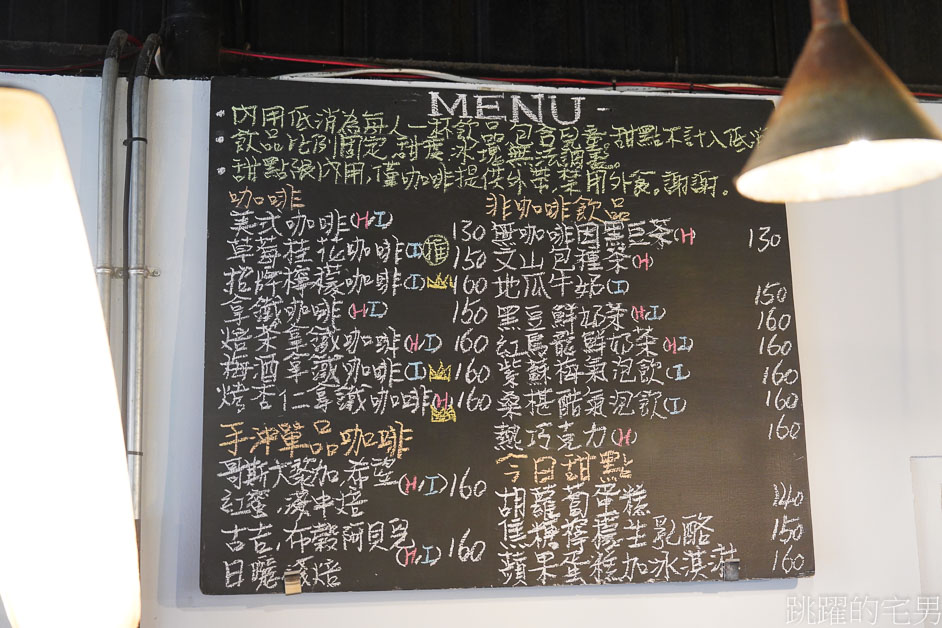 MENU
內用低消為每人一杯飲品包含兒童。甜點不計入低消
飲品比例固定,甜度、冰塊無法調整。
甜點限內用,僅咖啡提供外帶,禁用外食。謝謝。
咖啡
美式咖啡(H,I) 130
草莓桂花咖啡(I) 推 150
招牌檸檬咖啡(I) 160
拿鐵咖啡(H,I) 150
焙茶拿鐵咖啡(H,I) 160
梅酒拿鐵咖啡(I) 160
烤杏仁拿鐵咖啡(H) 160
手沖單品咖啡
哥斯大黎加,希望 (H,I) 160
紅蜜,淺中焙
古吉,布穀阿貝兒 (H,I) 160
日曬,淺焙
非咖啡飲品
無咖啡因黑豆茶(H) 130
文山包種茶(H)
地瓜牛奶(I) 150
黑豆鮮奶茶(H,I) 160
紅烏龍鮮奶茶(H,I) 160
紫蘇梅氣泡飲(I) 160
桑椹醋氣泡飲(I) 160
熱巧克力(H) 160
今日甜點
胡蘿蔔蛋糕 140
焦糖檸檬生乳酪 150
蘋果蛋糕加冰淇淋 160
跳躍的宅男